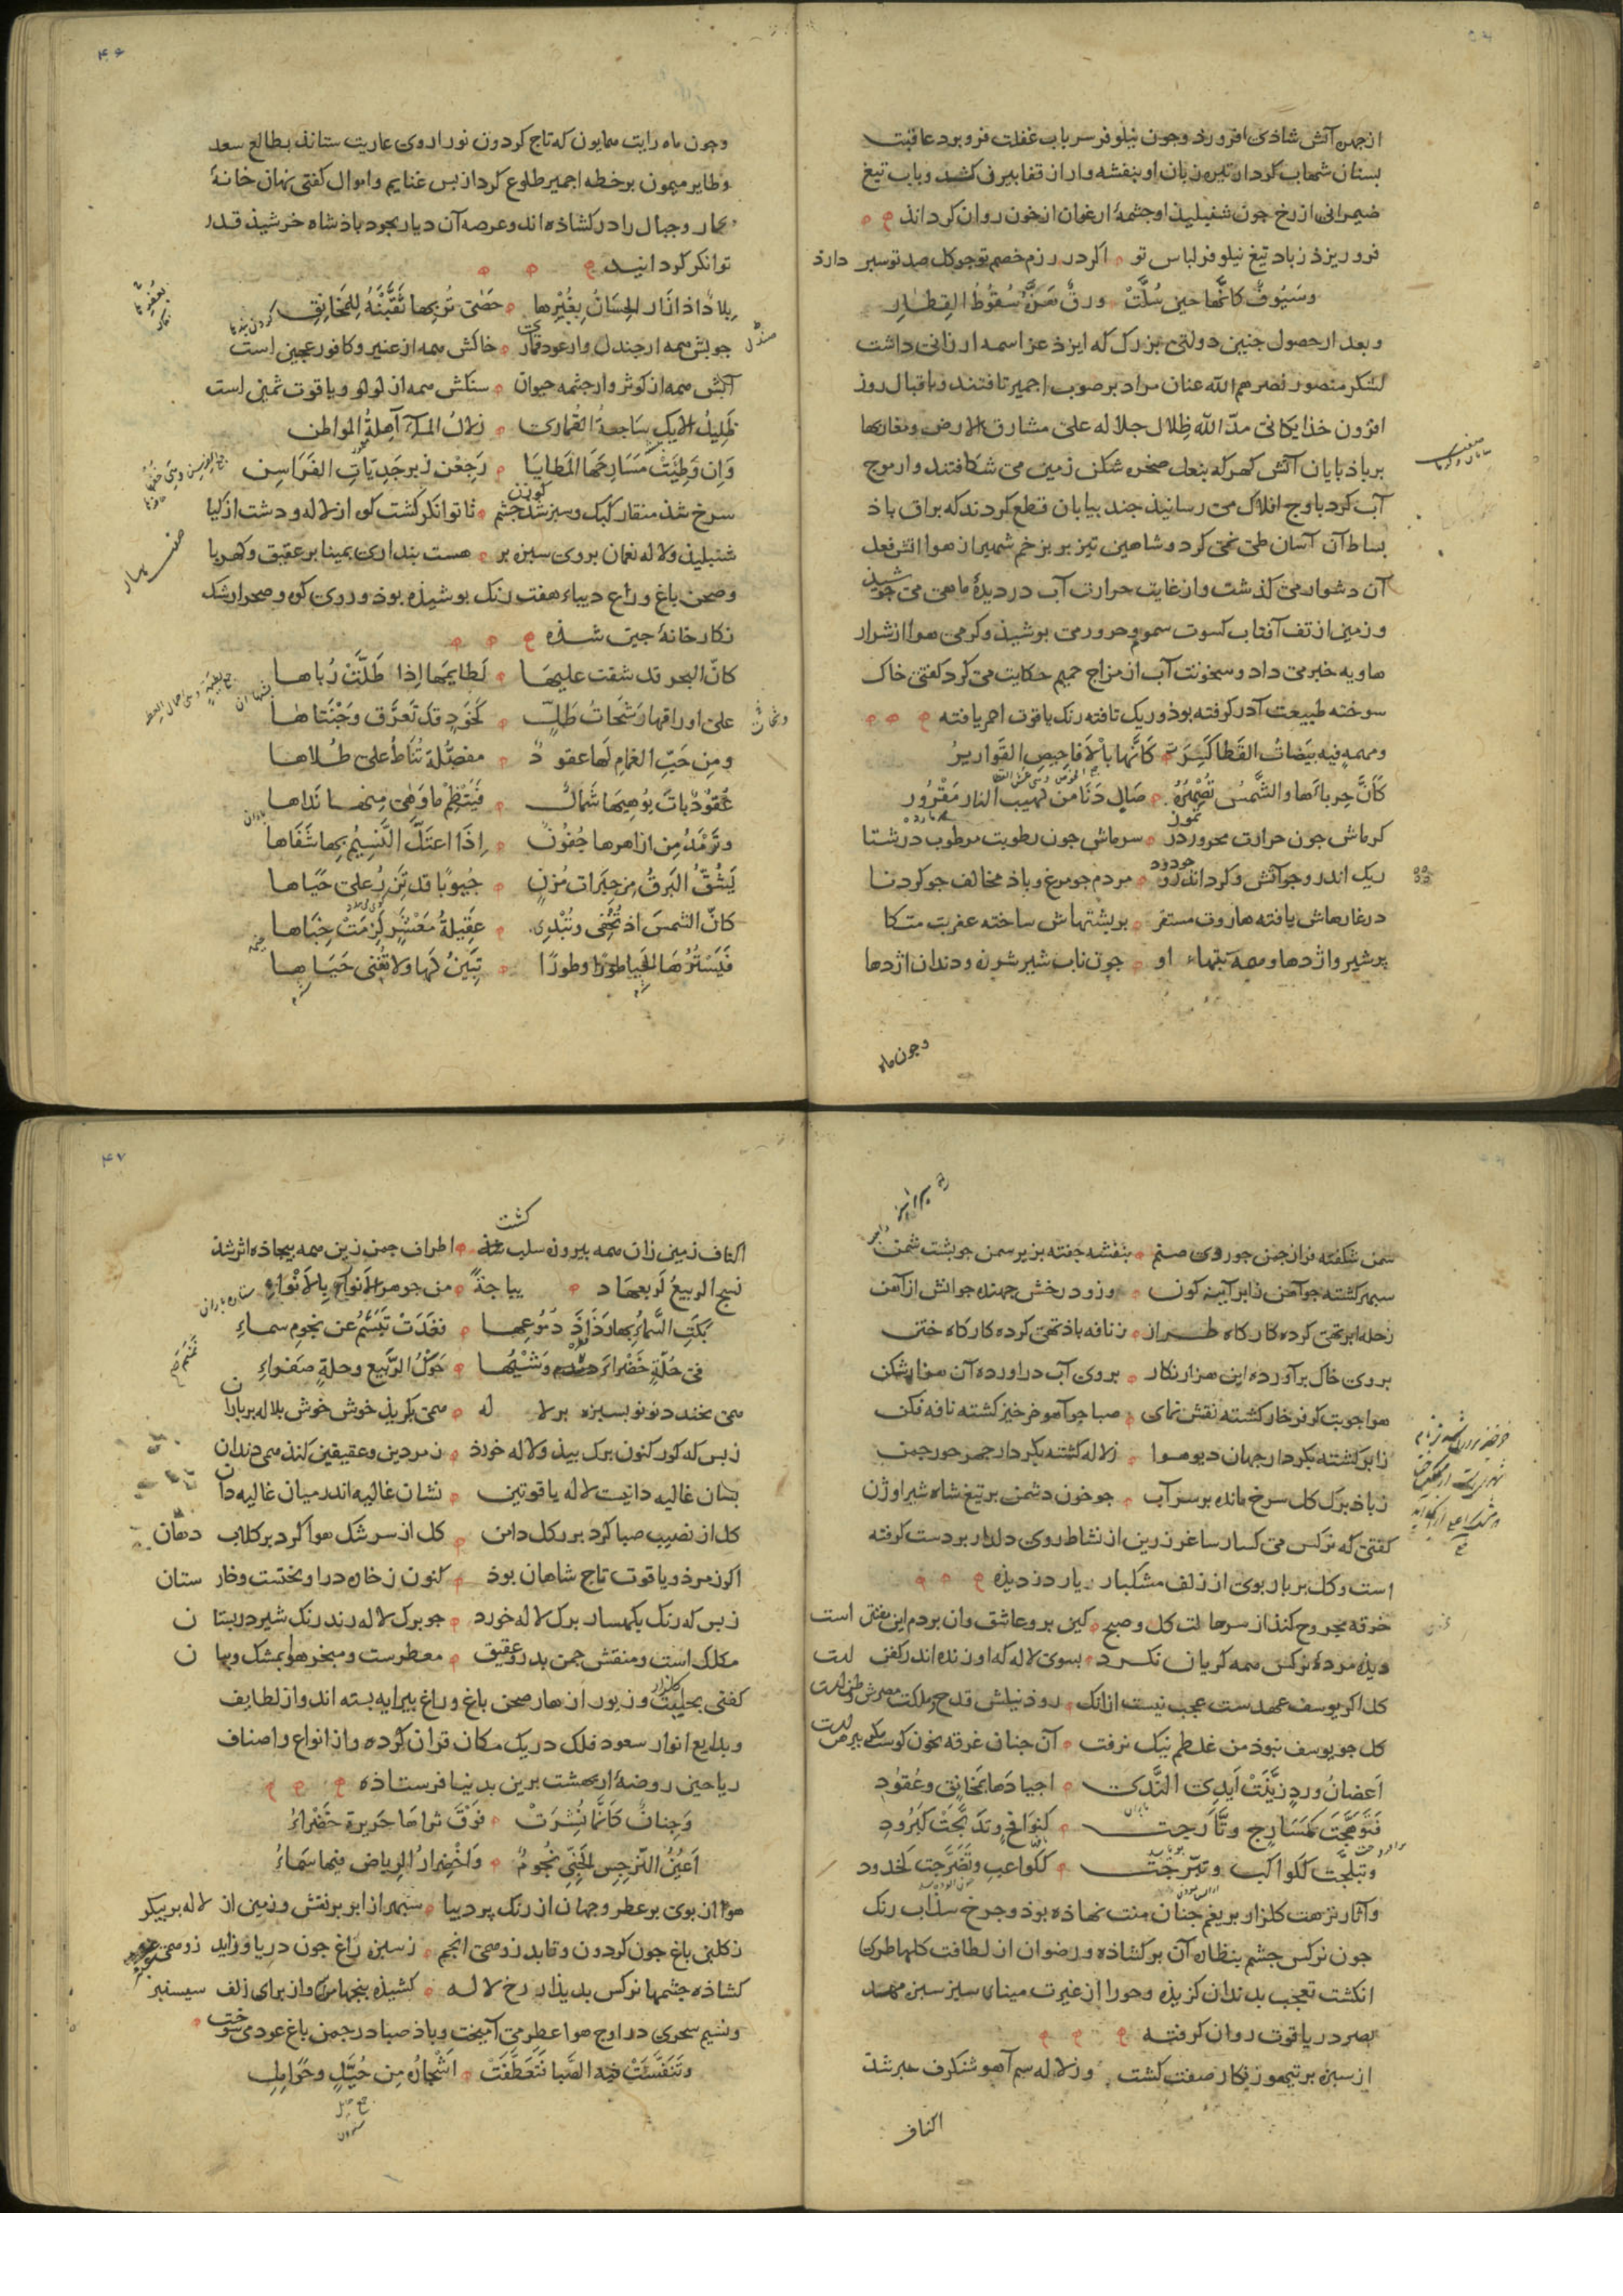 از جهره آتش شاذی افروزذ وجون نیلوفر سر باب غفلت فرو برد عاقبت
بسنان شهاب کردار تیره زبان او بنفشه وار از قفا بیرون کشد و باب تیغ
ضیمرانی از رخ جون شنبلیذ او جشمهٔ ارغوان از خون روان کرداند
فرو ریزذ زباد تیغ نیلوفر لباس تو اکر در رزم خصم تو جو کل صد تو سبر دارذ
وسیوف کانّها حین سُلَّتْ ورقٌ هَزَّهُ سُقُوطُ القِطارِ
و بعد از حصول جنین دولتی بزرک که ایزد عز اسمه ارزانی داشت
لشکر منصور نصرهم الله عنان مراد بر صوب اجمیر تافتند و باقبال روز
افزون خذایکانی مدّ الله ظِلال جلاله علی مشارق الارض ومغاربها
بر باذ بایان آتش کهر که بنعل صخره شکن زمین می شکافتند و از موج
آب کرد باوج افلاک می رسانیذ جند بیابان قطع کردند که براق باذ
بساط آن آسان طی نمی کرد و شاهین تیز بر بزخم شهبر از هوا آتش فعل
آن دشوار می کذشت و از غایت حرارت آب در دیدهٔ ماهی می جوشیذ
و زمین از تف آفتاب کسوت سموم و حرور می بوشیذ و کرمی هوا از شرار
هاویه خبر می داد و سخونت آب از مزاج حمیم حکایت می کرد کفتی خاک
سوخته طبیعت آذر کرفته بوذ و ریک تافته رنک یاقوت احمر یافته
ومهمهٍ فیه بیضاتُ القَطا کِسَرٌ کَانّها بالاَفاحِیصِ القَواریرُ
کَأَنَّ حِرباءَها والشَّمسُ تُصْهِرُهُ صَالٍ دَنَا من لَهیبِ النار مَقْرُور
کرماش جون حرارت محرور در تموز سرماش جون رطوبت مرطوب در شتا
ریک اندرو جو آتش و کرد اندرو جو دود مردم جو مرغ و باذ مخالف جو کردنا
در غارهاش یافته هاروت مستقر بر بشتهاش ساخته عفریت متکا
بر شیر و اژدها و همه تیهاء او جون ناب شیر شرزه و دندان اژدها
وجون ماه
۴۶
وجون ماه رایت همایون که تاج کردون نور از وی عاریت ستاند بطالع سعد
وطایر میمون بر خطه اجمیر طلوع کرد از بس غنایم و اموال کفتی نهان خانهٔ
بحار و جبال را در کشاذه اند و عرصه آن دیار بجود باذشاه خرشیذ قدر
توانکر کردانیده
بلادٌ اذا زار الحِسَانُ بِغَیْرِها حَصٰی تُربِها ثَقَّبْنَهُ لِلمَخانِقِ
جوبش همه از جندل و از عود قماری خاکش همه از عنبر و کافور عجین است
آبش همه از کوثر و از جشمه حیوان سنکش همه از لولو و یاقوت ثمین است
ظَلِیلُ الایکِ سَاجعةُ القُماری زلالُ المآءِ آهِلةُ المواطن
وَاِن وَطِئَتْ مَسَارِحَها المَطایَا رَجَعْن زبرجَدِیّاتِ الفَرَاسِن
سرخ شذ منقار کبک و سبز شد جشم کوزن تا توانکر کشت کوه از لاله و دشت از کیا
شنبلیذ و لاله نعمان بر وی سبزه بر هست بنداری بمینا بر عقیق و کهربا
وصحن باغ و راغ دیباء هفت رنک بوشیذه بوذ و روی کوه و صحرا رشک
نکارخانهٔ جین شذه
کانّ البحر قد شقت علیها لَطایمَها اِذا طَلَّتْ رُباها
علی اوراقها رَشَحَاتُ طَلٍّ کَخَودٍ قد تَعرَّق وَجْنَتاها
ومِن حَبّ الغمامِ لَها عقودٌ مفصَّلة تُناطُ علی طُلاها
عُقودٌ باتَ یُوهِیهَا شَمالٌ فیَنْتَظِمْ ما وَهٰی مِنها نَداها
وتَرْمَدُ مِن ازاهرها جُفُونٌ اِذَا اعتَلَّ النَّسیمُ بِها شَفَاها
یَشُقُّ البَرقُ مِن حِبَرات مُزنٍ جُیوبًا قد تُزَرُّ علی حَیَاها
کانّ الشمسَ اذ تُخْفٰی وتُبْدِی عَقیلةُ مَعْشَرٍ لَزِمَتْ خِبَاها
فَیَسْتُرُهَا الحَیا طورًا وطورًا تَبِینُ لَها ولا تُغنی حَیَاها
سمن شکفته فراز جمن جو روی صنم بنفشه جفته بزیر سمن جو بشت شمن
سبهر کشته جو آهن ز ابر آینه کون وزو درخش جهنده جو آتش از آهن
ز حله ابر تهی کرده کارکاه طراز ز نافه باذ تهی کرده کارکاه ختن
بروی خاک برآورده این هزار نکار بروی آب دراورده آن هزار شکن
هوا جو بتکر فرخار کشته نقش نمای صبا جو آهو خرخیز کشته نافه فکن
ز ابر کشته بکردار جهان دیو هوا ز لاله کشته بکردار جهر حور جمن
ز باذ برک کل سرخ مانده بر سر آب جو خون دشمن بر تیغ شاه شیر اوژن
کفتی که نرکس می کسار ساغر زرین از نشاط روی دلدار بر دست کرفته
است و کل بر بار بوی از زلف مشکبار یار دزدیذه
خرقه مجروح کند از سر حالت کل و صبح کین برو عاشق و آن بر دم این مفتن است
دیذه مردهٔ نرکس همه کریان نکرد بسوی لاله که او زنده اندر کفن است
کل اکر یوسف عهدست عجب نیست ازانک روذ نیلش قدح و ملکت مصرش وطن است
کل جو یوسف نبوذ من غلطم نیک نرفت آن جنان غرقه بخون کوست مکر بیرهن است
اَغصانُ وردٍ زیَّنَتْ اَیدِی النَّدَی اجیادَها بمَخانِقٍ وعُقودِ
فَتَوَهَّجَت کمَسَارِجٍ وتَأرّجت کنوَافِجٍ وتَدَبَّجَتْ کَبُرُودِ
وتبلَّجَت ککواکب وتبرّجَت ککَواعبٍ وتَضَرَّجت کخُدود
و آثار نزهت کلزار بر یغم جنان منت نهاذه بوذ و جرخ سذاب رنک
جون نرکس جشم بنظاره آن برکشاذه و رضوان از لطافت کلها طری
انکشت تعجب بدندان کزیذه و حورا از غیرت مینای سبز سبزه مهد
بصر در یاقوت روان کرفته
از سبزه بر تیهو زنکار صفت کشت وز لاله سم آهو شنکرف خبر شذ
اکناف
۴۷
اکناف زمین زان همه بیروزه سلب کشت اطراف جمن زین همه بیجاذه اثر شذ
نسج الربیعُ لربعها دیباجةً من جوهر الاَنوار بِالاَنْواءِ
بَکَتِ السَّماءُ بها رذَاذَ دُمُوعِها فغَدَتْ تَبَسَّمُ عن نجومِ سماءِ
فی حُلَّةٍ خَضْراءَ وَشْیُها حَوْکُ الرَّبیعِ وحلةٍ صَفراءِ
همی بخندد نو نو بسبزه بر لاله همی بکریذ خوش خوش بلاله بر باران
ز بس که کور کنون برک بیذ و لاله خورذ زمردین و عقیقین کند همی دندان
بسان غالیه دانیست لاله یاقوتین نشان غالیه اندر میان غالیه دان
کل از نصیب صبا کرد بر ز کل دامن کل از سرشک هوا کرد بر کلاب دهان
اکر زمرذ و یاقوت تاج شاهان بوذ کنون ز خاره دراویخت و خارستان
ز بس که رنک بکهسار برک لاله خورد جو برک لاله رند رنک شیر در بستان
مکلل است و منقش جمن بدر و عقیق معطرست و مبخر هوا بمشک و ببان
کفتی بحلیت و زیور ازهار صحن باغ و راغ بیرایه بسته اند و از لطایف
و بدایع انوار سعود فلک در یک مکان قران کرده و از انواع و اصناف
ریاحین روضهٔ از بهشت برین بدنیا فرستاذه
وَجِنانٌ کَانَّما نُشِرَتْ فَوْقَ ثراهَا حَریرة خَضْراءُ
اَعیُنُ النّرجِسِ الجَنِیِّ نُجُومٌ وَاخْضِرارُ الرِیاض فیها سَمَاءُ
هوا از بوی بر عطر و جهان از رنک بر دیبا سبهر از ابر بر نقش و زمین از لاله بر بیکر
ز کلبن باغ جون کردون و تابد زو همی انجم ز سبزه راغ جون دریا و زاید زو همی عنبر
کشاذه جشمها نرکس بدیذار رخ لاله کشیذه بنجها سرو از برای زلف سیسنبر
و نسیم سحری در اوج هوا عطر می آمیخت و باذ صبا در جمن باغ عود می سوخت
وتَنَفَّسَتْ فیه الصَّبا فتَعَطَّفَتْ اَشْجارُه مِن حُیَّلٍ وحَوامِلِ